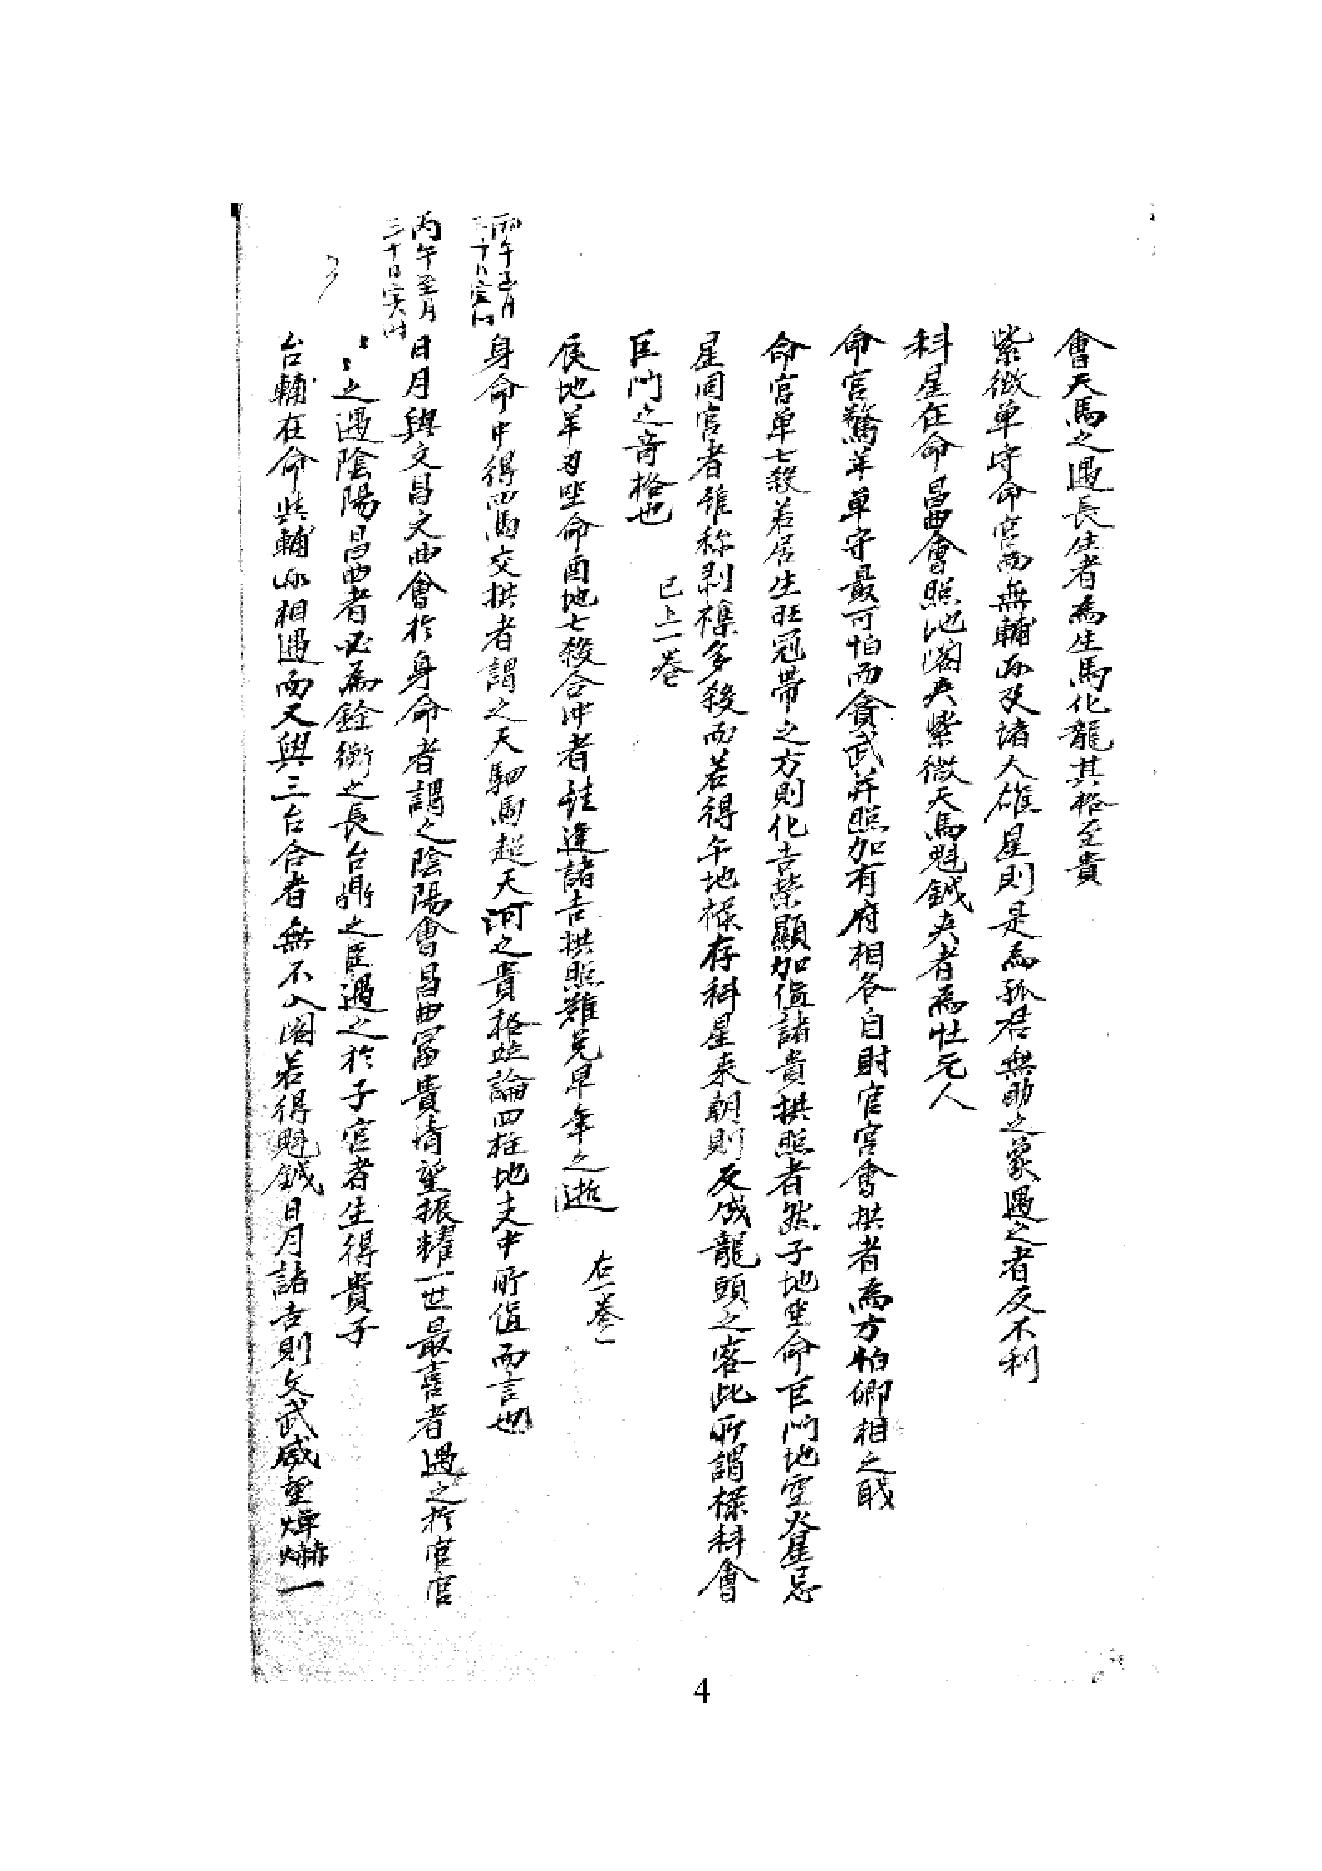 會天馬之遇長生者為生馬化龍其格至貴
紫微單守命宮而無輔弼及諸人雄星則是為孤君無助之象遇之者反不利
科星在命昌曲會照地溺夾紫微天馬魁鉞夾者為壯元人
命宮驚羊單守最可怕而貪武并照加有府相各自財官宮會拱者為方怕卿相之職
命宮單七殺若居生旺冠帶之方則化吉榮顯加值諸貴拱照者然子地坐命巨門地空火星忌
星同宮者雖称剥襍多殺而若得午地祿存科星来朝則反成龍頭之客此所謂祿科會
巨門之奇格也
已上一卷
辰地羊刃坐命酉地七殺合冲者雖逢諸吉拱照難免早年之逝
右一卷一
身命中得四馬交拱者謂之天駟馬越天河之貴格此論四柱地支中所值而言也
丙午至月
三十日
日月與文昌文曲會於身命者謂之陰陽會昌曲富貴清望振耀一世最喜者遇之於官宮
之遇陰陽昌曲者必為銓衡之長台鼎之臣遇之於子宮者生得貴子
台輔在命與輔弼相遇而又與三台合者無不入閣若得魁鉞日月諸吉則文武威望燀爀一
4